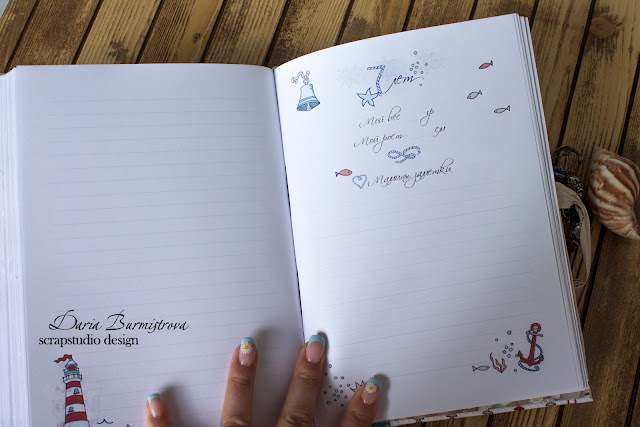 Daria Burmistrova
scrapstudio design
7 лет
Мой вес гр
Мой рост см
Мамины заметки